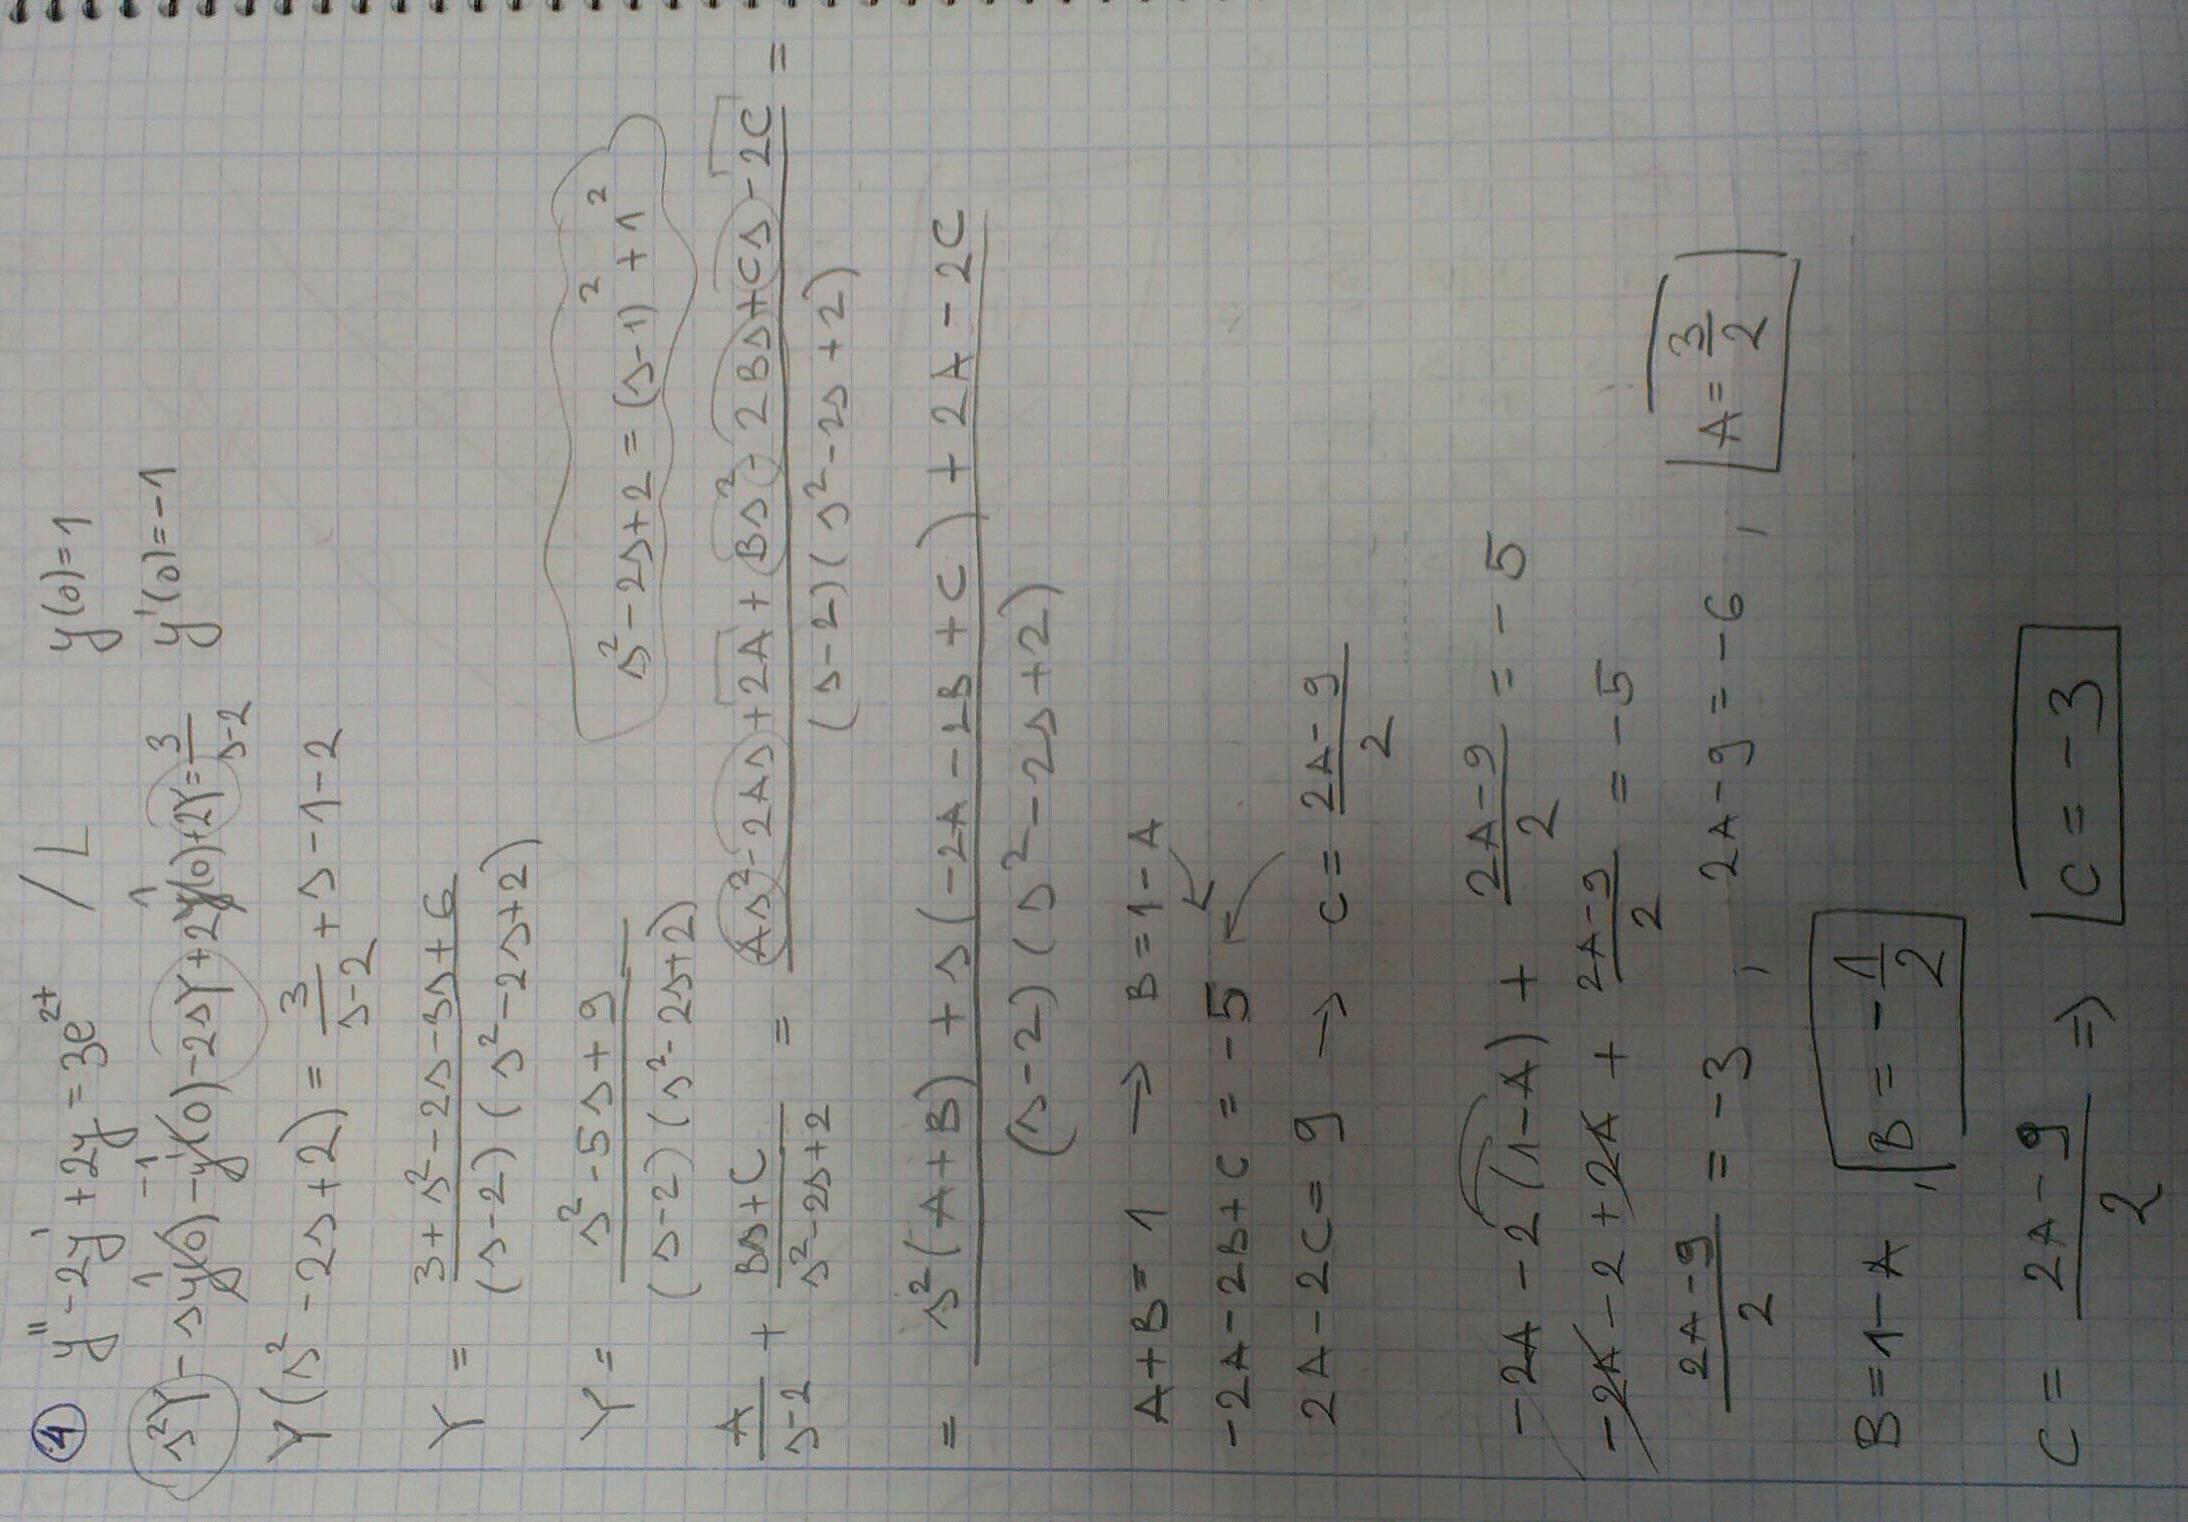 ④ y'' - 2y' + 2y = 3e^{2t} / L y(0)=1
s²Y - sy(0) - y'(0) - 2sY + 2y(0) + 2Y = 3/(s-2) y'(0)=-1
1 -1 1
Y(s² - 2s + 2) = 3/(s-2) + s - 1 - 2
Y = (3 + s² - 2s - 3s + 6)/((s-2)(s² - 2s + 2))
Y = (s² - 5s + 9)/((s-2)(s² - 2s + 2))
s² - 2s + 2 = (s-1)² + 1²
A/(s-2) + (Bs+C)/(s² - 2s + 2) = (As² - 2As + 2A + Bs² - 2Bs + Cs - 2C)/((s-2)(s² - 2s + 2)) =
= (s²(A+B) + s(-2A - 2B + C) + 2A - 2C)/((s-2)(s² - 2s + 2))
A+B = 1 → B = 1-A
-2A - 2B + C = -5
2A - 2C = 9 → C = (2A-9)/2
-2A - 2(1-A) + (2A-9)/2 = -5
-2A - 2 + 2A + (2A-9)/2 = -5
(2A-9)/2 = -3 , 2A - 9 = -6 , A = 3/2
B = 1-A , B = -1/2
C = (2A-9)/2 ⇒ C = -3